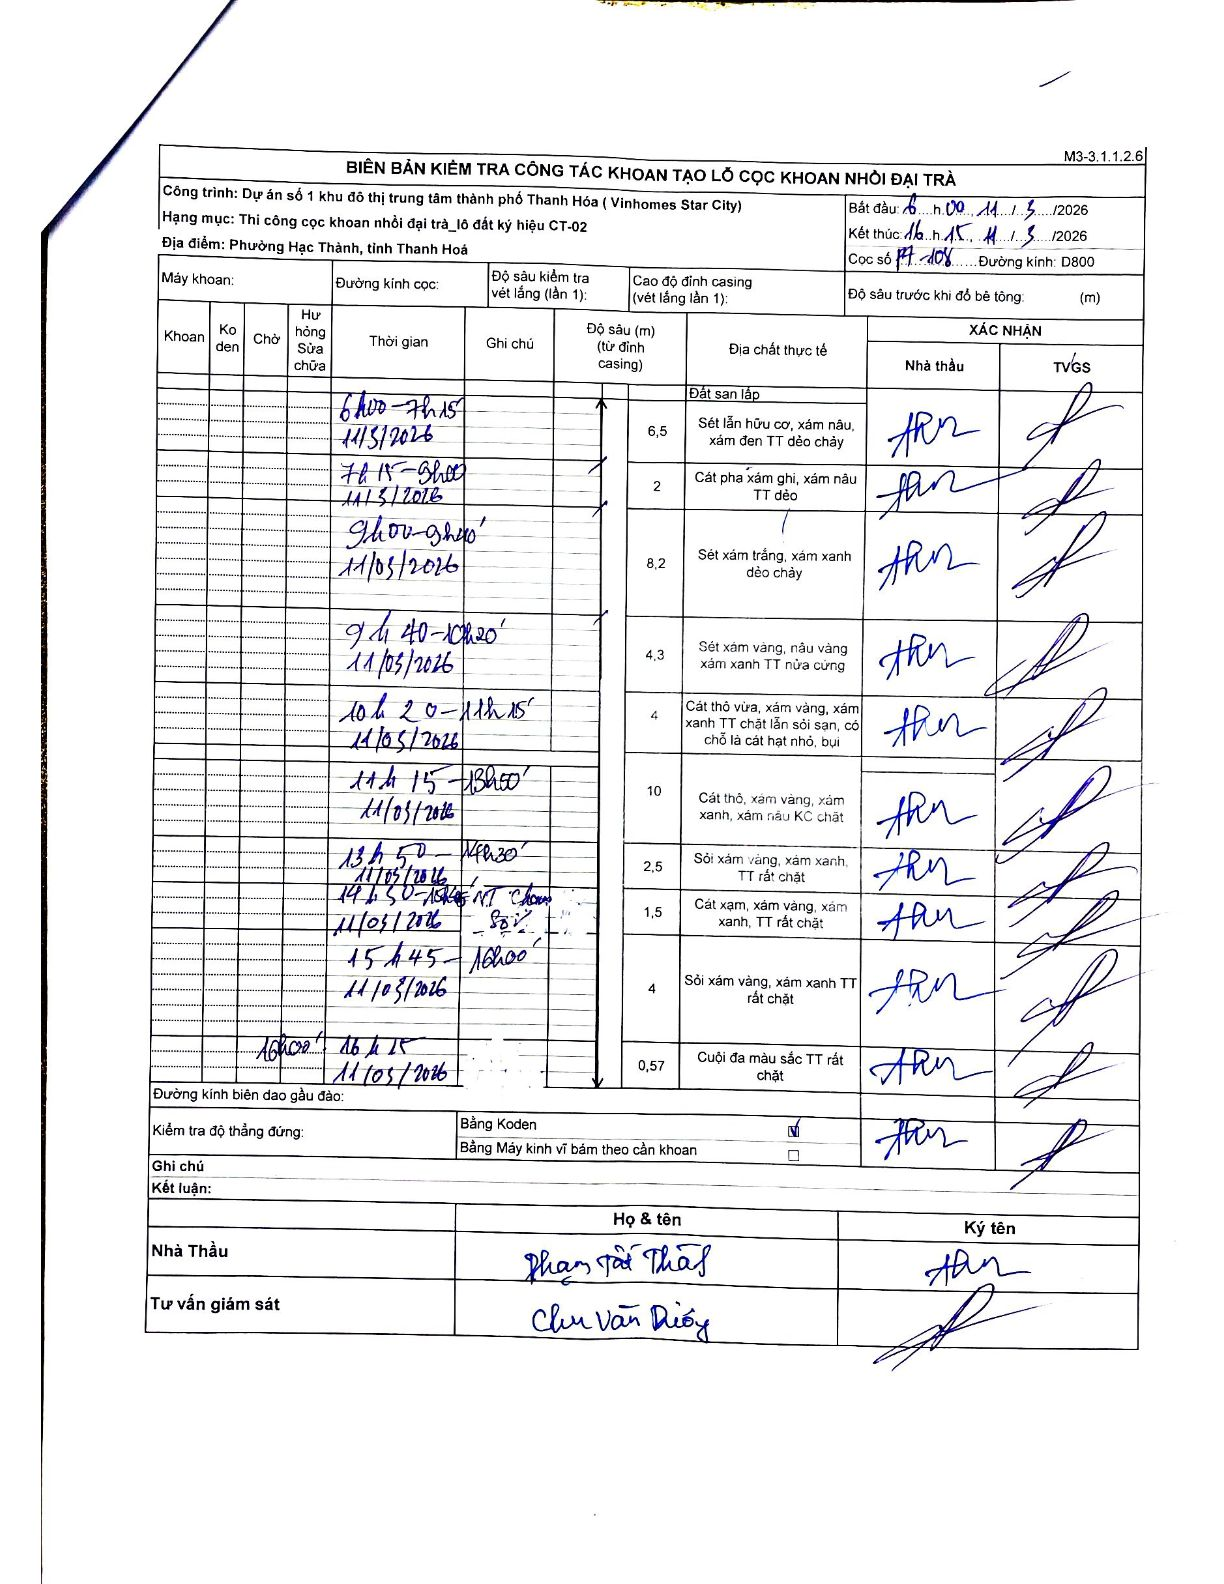 M3-3.1.1.2.6
BIÊN BẢN KIỂM TRA CÔNG TÁC KHOAN TẠO LỖ CỌC KHOAN NHỒI ĐẠI TRÀ
Công trình: Dự án số 1 khu đô thị trung tâm thành phố Thanh Hóa ( Vinhomes Star City)
Hạng mục: Thi công cọc khoan nhồi đại trà_lô đất ký hiệu CT-02
Địa điểm: Phường Hạc Thành, tỉnh Thanh Hoá
Bắt đầu: 6 h 00, 11 / 3 /2026
Kết thúc: 16 h 15, 11 / 3 /2026
Cọc số -108 Đường kính: D800
Máy khoan:
Đường kính cọc:
Độ sâu kiểm tra vét lắng (lần 1):
Cao độ đỉnh casing (vét lắng lần 1):
Độ sâu trước khi đổ bê tông: (m)
Khoan
Ko den
Chờ
Hư hỏng Sửa chữa
Thời gian
Ghi chú
Độ sâu (m) (từ đỉnh casing)
Địa chất thực tế
XÁC NHẬN
Nhà thầu
TVGS
Đất san lấp
6h00-7h15
11/3/2026
6,5
Sét lẫn hữu cơ, xám nâu, xám đen TT dẻo chảy
7h15-9h00
11/3/2026
2
Cát pha xám ghi, xám nâu TT dẻo
9h00-9h40'
11/03/2026
8,2
Sét xám trắng, xám xanh dẻo chảy
9h40-10h20'
11/03/2026
4,3
Sét xám vàng, nâu vàng xám xanh TT nửa cứng
10h20-11h15'
11/03/2026
4
Cát thô vừa, xám vàng, xám xanh TT chặt lẫn sỏi sạn, có chỗ là cát hạt nhỏ, bụi
11h15-13h50'
11/03/2026
10
Cát thô, xám vàng, xám xanh, xám nâu KC chặt
13h50-14h30'
11/03/2026
2,5
Sỏi xám vàng, xám xanh, TT rất chặt
11/03/2026
1,5
Cát xạm, xám vàng, xám xanh, TT rất chặt
15h45-16h00'
11/03/2026
4
Sỏi xám vàng, xám xanh TT rất chặt
16h00' 16h15
11/03/2026
0,57
Cuội đa màu sắc TT rất chặt
Đường kính biên dao gầu đào:
Kiểm tra độ thẳng đứng:
Bằng Koden
Bằng Máy kinh vĩ bám theo cần khoan
Ghi chú
Kết luận:
Họ & tên
Ký tên
Nhà Thầu
Phạm Tất
Tư vấn giám sát
Chu Văn